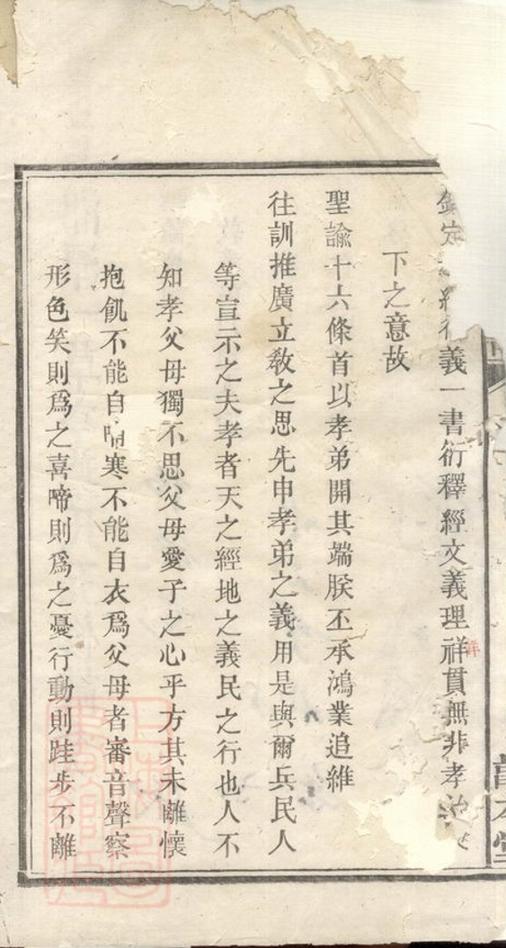 義一書衍釋經文義理祥貫無非孝
下之意故
聖諭十六條首以孝弟開其端朕丕承鴻業追維
往訓推廣立敎之思先申孝弟之義用是與爾兵民人
等宣示之夫孝者天之經地之義民之行也人不
知孝父母獨不思父母愛子之心乎方其未離懷
抱飢不能自哺寒不能自衣爲父母者審音聲察
形色笑則爲之喜啼則爲之憂行動則跬步不離